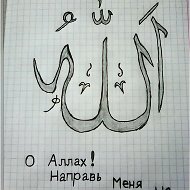 الله
О Аллах!
Направь
Меня